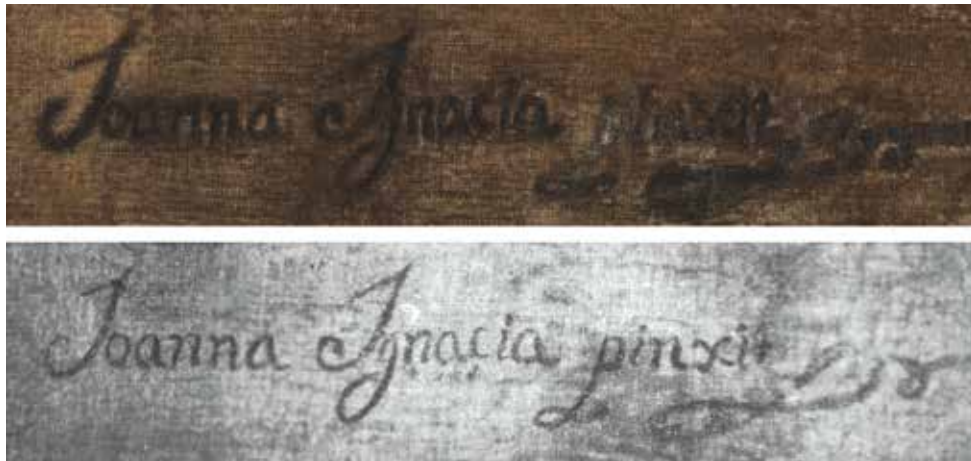 Joanna Ignacia pinxit
Joanna Ignacia pinxit